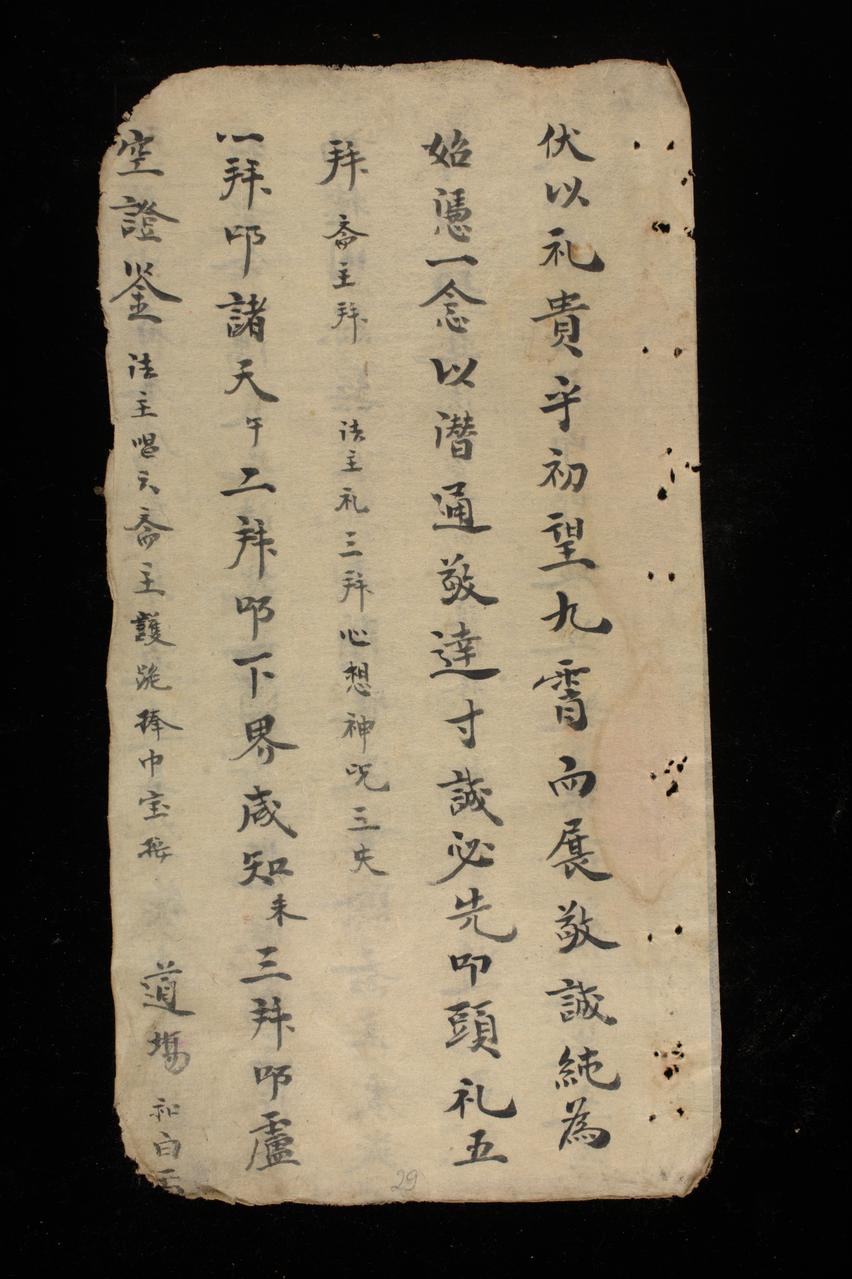 伏以礼貴乎初望九霄而展敬誠純為
始憑一念以潜通敬達寸誠必先叩頭礼五
拜 斎主拜 法主礼三拜心想神咒三失
一拜叩諸天午二拜叩下界咸知未三拜叩盧
空證鉴 法主唱云斎主護跪捧巾宝按 道場 和白
29